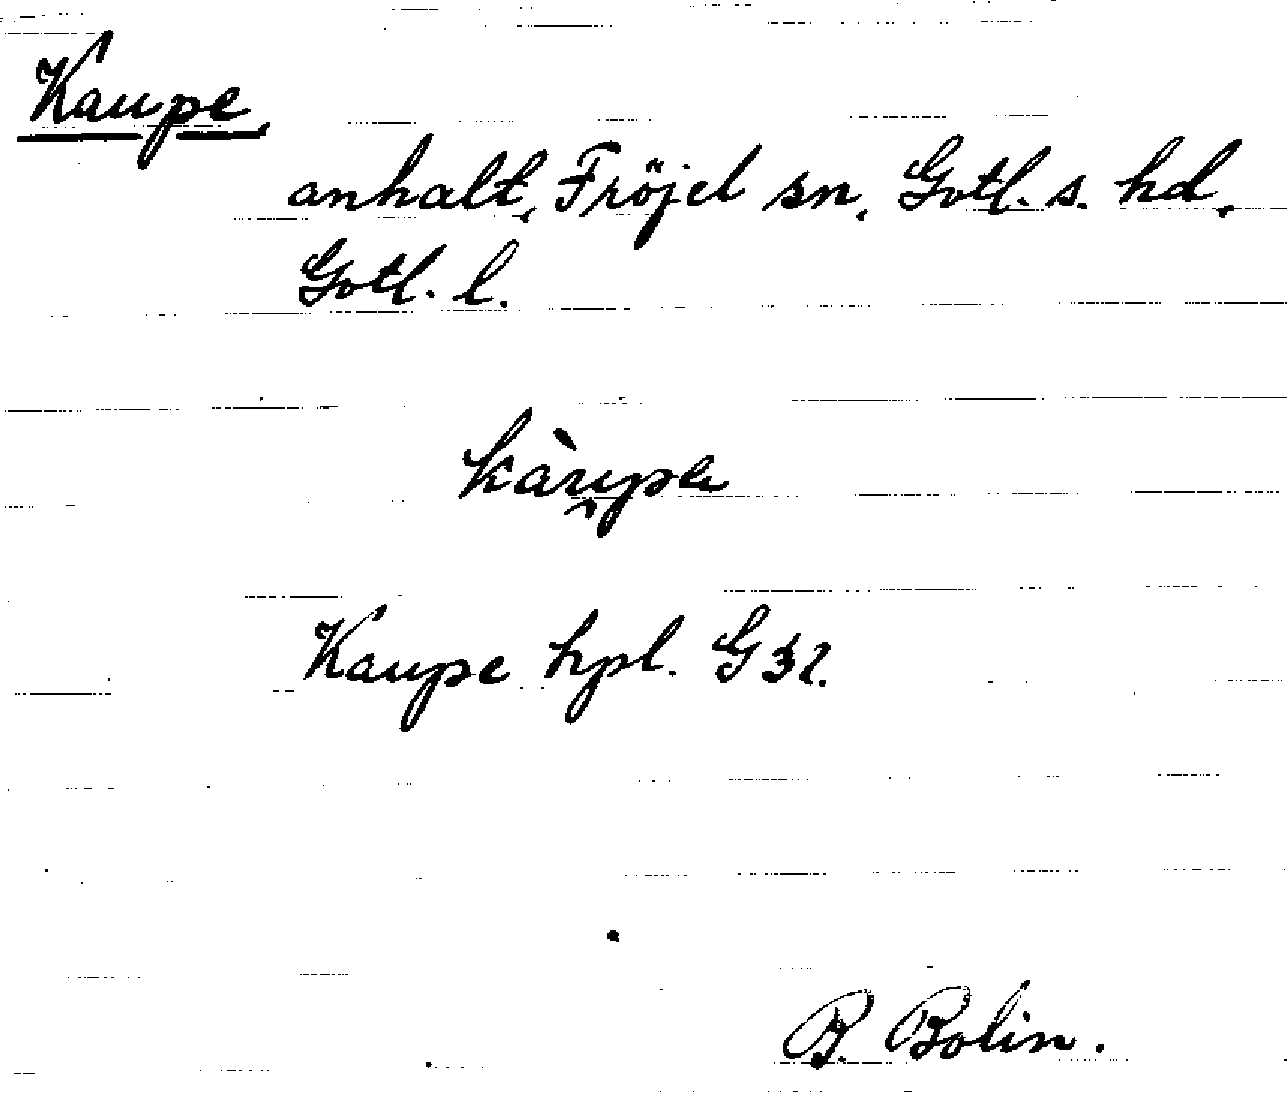 Kaupe,
anhalt, Fröjel sn, Gotl. s. hd,
Gotl. l.
Kaupe hpl. G 32.
B. Bolin.